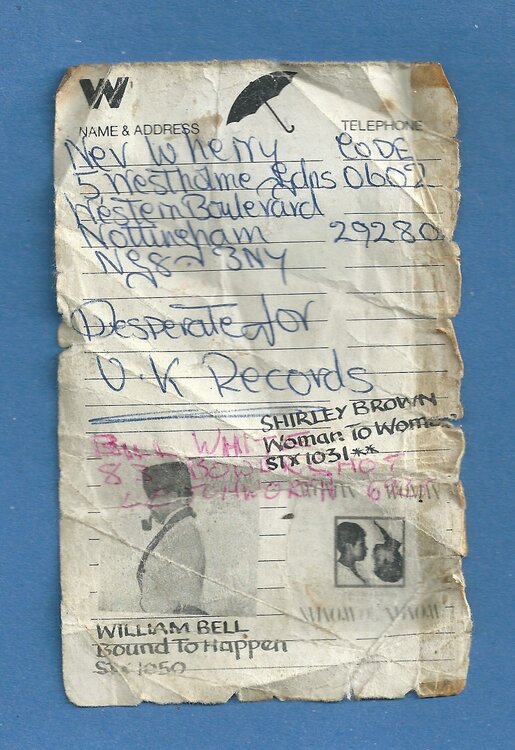 W
NAME & ADDRESS
TELEPHONE
Nev Wherry CODE
5 Westholme Gdns 0602
Western Boulevard
Nottingham 29280
NG8 3NY
Desperate for
U.K Records
SHIRLEY BROWN
Woman To Woman
STX 1031**
BILL WHITE
8
WILLIAM BELL
Bound To Happen
STX 1050